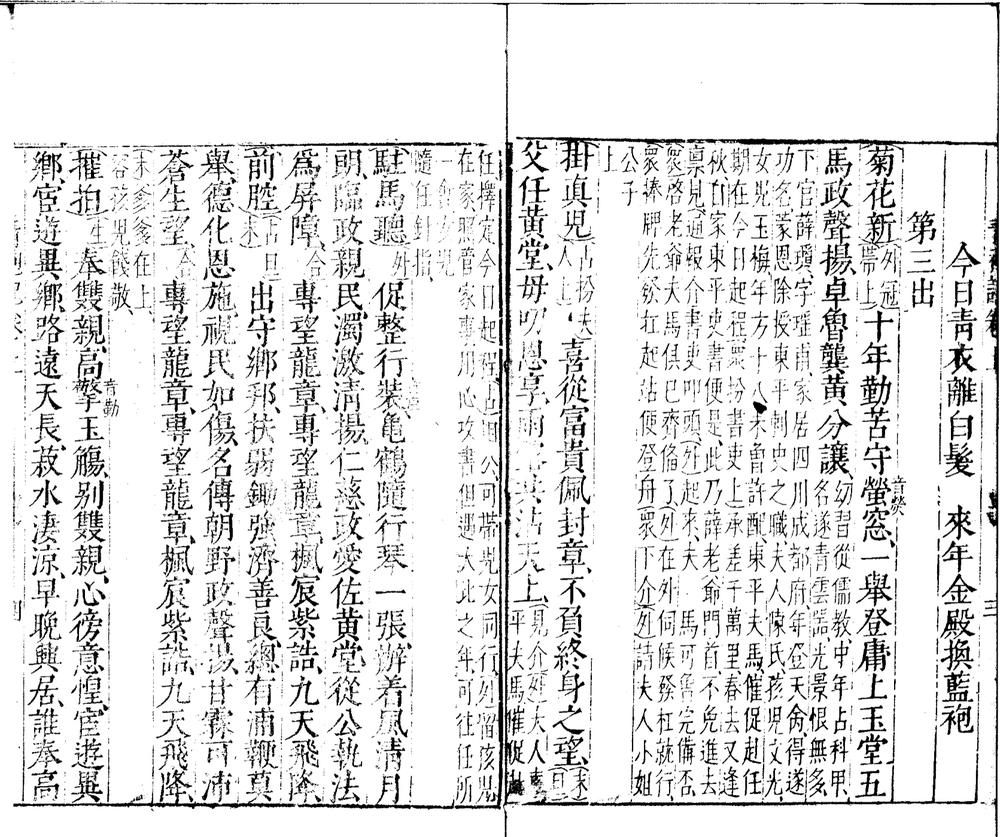 今日青衣離白髮　來年金殿換藍袍
第三出
菊花新（外冠帶上）十年勤苦守螢窓一舉登庸上玉堂五
音熒
馬政聲揚卓魯龔黃分讓幼習從儒教中年占科甲
名遂青雲謡光景恨無多
下官薛瓊字瑤甫家居四川成都府年登天命得遂
功名蒙恩除授東平刺史之職夫人陳氏孩兒文光
女兒玉梅年方十八未曾許配東平夫馬催促起任
期在今日起程衆扮書吏上承差千萬里春去又逢
秋自家東平吏書便是此乃薛老爺門首不免進去
稟見通報介書吏叩頭外起來夫馬可曾完備否
衆啓老爺夫馬俱已齊備了外在外伺候發杠就行
衆捧牌先發杠起站便登舟衆下介外請夫人小姐
公子
上
掛真兒占扮夫人上喜從富貴佩封章不負終身之望旦末
父任黃堂母叨恩享沾天上見介外夫人東
平夫馬催促
任擇定今日起程相公可帶兒女同行外留孩兒
在家照管家事用心攻書但遇大比之年可往任所
一會女兒
隨任針指
駐馬聽外促整行裝龜鶴隨行琴一張辦着風清月
朗臨政親民濁激清揚仁慈政愛佐黃堂從公執法
爲屏障合專望龍章專望龍章楓宸紫誥九天飛降
前腔占旦末出守鄉邦扶弱鋤強濟善良總有蒲鞭莫
舉德化恩施視民如傷名傳朝野政聲揚甘霖可沛
蒼生望合專望龍章專望龍章楓宸紫誥九天飛降
末爹爹在上
容孩兒餞敬
摧拍生奉雙親高擎玉觴別雙親心徬意惶宦遊異
音勤
鄉宦遊異鄉路遠天長菽水淒涼早晚興居誰奉高